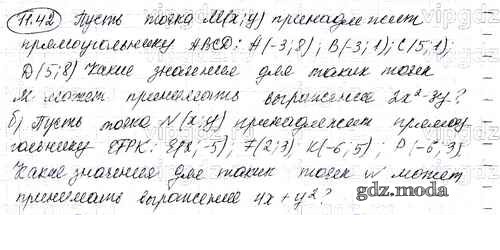 11.42 Пусть точка M(x;y) принадлежит
прямоугольнику ABCD: A(-3;8); B(-3;1); C(5;1);
D(5;8) Какие значения для таких точек
M может принимать выражение 2x²-3y?
б) Пусть точка N(x;y) принадлежит прямоу
гольнику EFPK: E(2;-5); F(2;3) K(-6;5); P(-6;3)
Какие значения для таких точек N может
принимать выражение 4x+y²?
gdz.moda